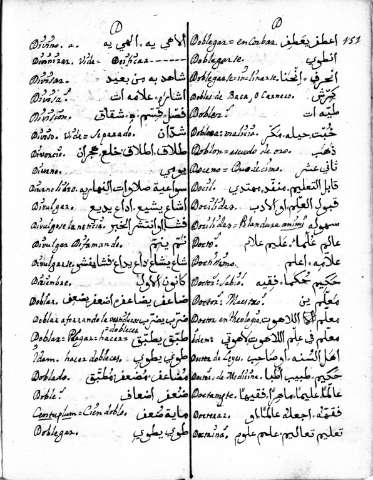 D
Divino. a. الاهي يه. الهي يه
Divinizar. Vide Deificar
Divisar. شاهد به من بعيد
Divisa. اشاره. علامه ات
Division. فصل. قسم. و شقاق
Diviso. Vide Separado. شتّان
Divorcio. طلاق. اطلاق. خلع. هجران
Diurno. يومي
Diurnal libro. سواعية صلاوات النهاريه
Divulgar. اشاع يشيع. اذاع يذيع
Divulgarse la noticia. فشا او انتشر الخبر
Divulgar Disfamando. نمّ ينمّ
Divulgarse. شاع يشاع. ذاع يذاع. فشا يفشي
Diziembre. كانون الاول
Doblar. ضاعف يضاعف. اضعف يضعف
Doblar aforrando ضرّب يضرّب
Doblar = Plegar = hacer dobleces طبّق يطبّق
Idem. hacer dobleces. طوي يطوي
Doblado. مضاعف. مضعف. مطبّق
Doble. ضعف اضعاف
Centuplum = Cien doble. ماية ضعف
Doblegar. طوي يطوي
D
151
Doblegar = encorbar. اعطف يعطف
Doblegarse. انطوي
Doblegarse = inclinarse. انحرف. انحنا
Dobles de Baca, o Carnero. كرش
Doblez. طيّه ات
Doblez = malicia. خُبث. حيله. مكر
Doblon = escudo de oro. ذهب
Doceno = Duodecimo. ثاني عشر
Docil. قابل التعليم. منقاد. مهتدي
Docilidad. قبول العلم او الادب
Docilidad = Blandura animi سهوله
Docto. عالم علما. عليم علام
Doctissimo. علّامه. اعلم
Doctor = Sabio. حكيم حكما. فقيه
Doctor = Maestro. معلّم ين
Doctor en Theologia. معلم اللاهوت
Idem. معلّم في علم اللاهوت. لاهوتي
Doctor de Leyes. اهل السنّه. او صاحب
Doctor. de Medicina. حكيم. طبيب اطبا
Doctamente. عالمًا. عليمًا. ماهرًا. فقيهًا
Doctorar. فقّه. اجعله عالمًا. او
Doctrina. تعليم تعاليم. علم علوم